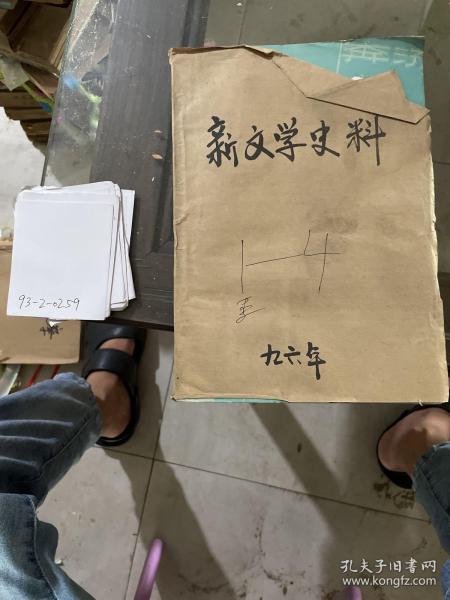 新文学史料
1-4
九六年
93-2-0259
孔夫子旧书网
www.kongfz.com